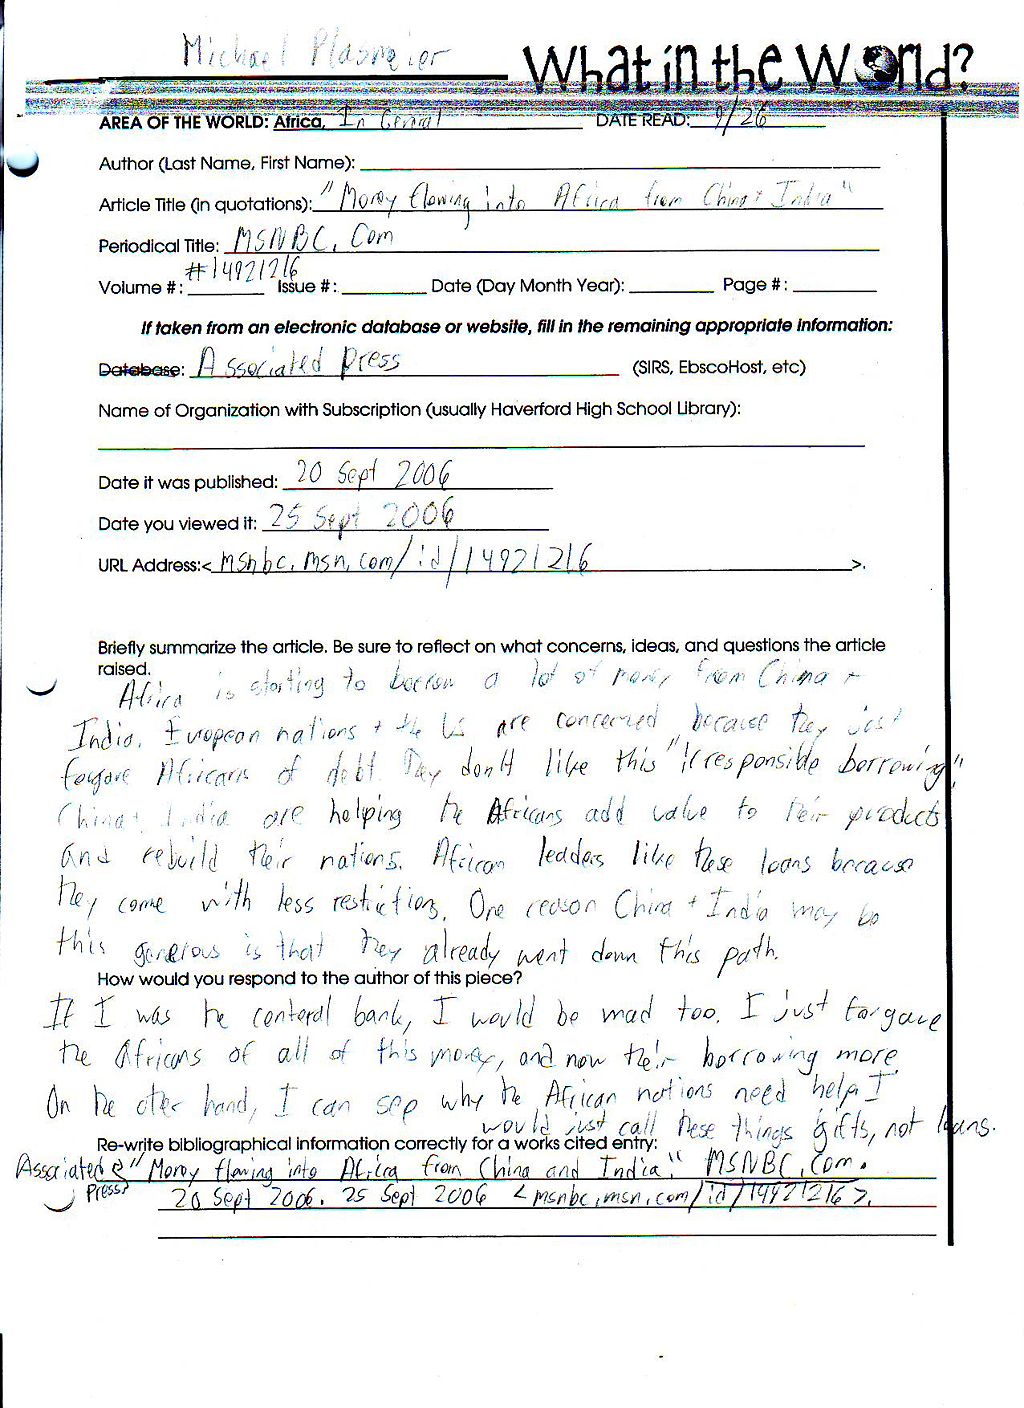 Michael Plasmeier
What in the World?
AREA OF THE WORLD: Africa, In General DATE READ: 9/26
Author (Last Name, First Name):
Article Title (in quotations): "Money flowing into Africa from China + India"
Periodical Title: MSNBC.Com
#14921216
Volume #: Issue #: Date (Day Month Year): Page #:
If taken from an electronic database or website, fill in the remaining appropriate information:
Database: Associated Press (SIRS, EbscoHost, etc)
Name of Organization with Subscription (usually Haverford High School Library):
Date it was published: 20 Sept 2006
Date you viewed it: 25 Sept 2006
URL Address:< msnbc.msn.com/id/14921216 >.
Briefly summarize the article. Be sure to reflect on what concerns, ideas, and questions the article
raised.
Africa is starting to borrow a lot of money from China +
India. European nations + the US are concerned because they just
forgave Africans of debt. They don't like this "irresponsible borrowing".
China + India are helping the Africans add value to their products
and rebuild their nations. African leaders like these loans because
they come with less restrictions. One reason China + India may be
this generous is that they already went down this path.
How would you respond to the author of this piece?
If I was the centeral bank, I would be mad too. I just forgave
the Africans of all of this money, and now their borrowing more
On the other hand, I can see why the African nations need help I
would just call these things gifts, not loans.
Re-write bibliographical information correctly for a works cited entry:
Associated Press "Money flowing into Africa from China and India." MSNBC.Com.
20 Sept 2006. 25 Sept 2006 <msnbc.msn.com/id/14921216>.